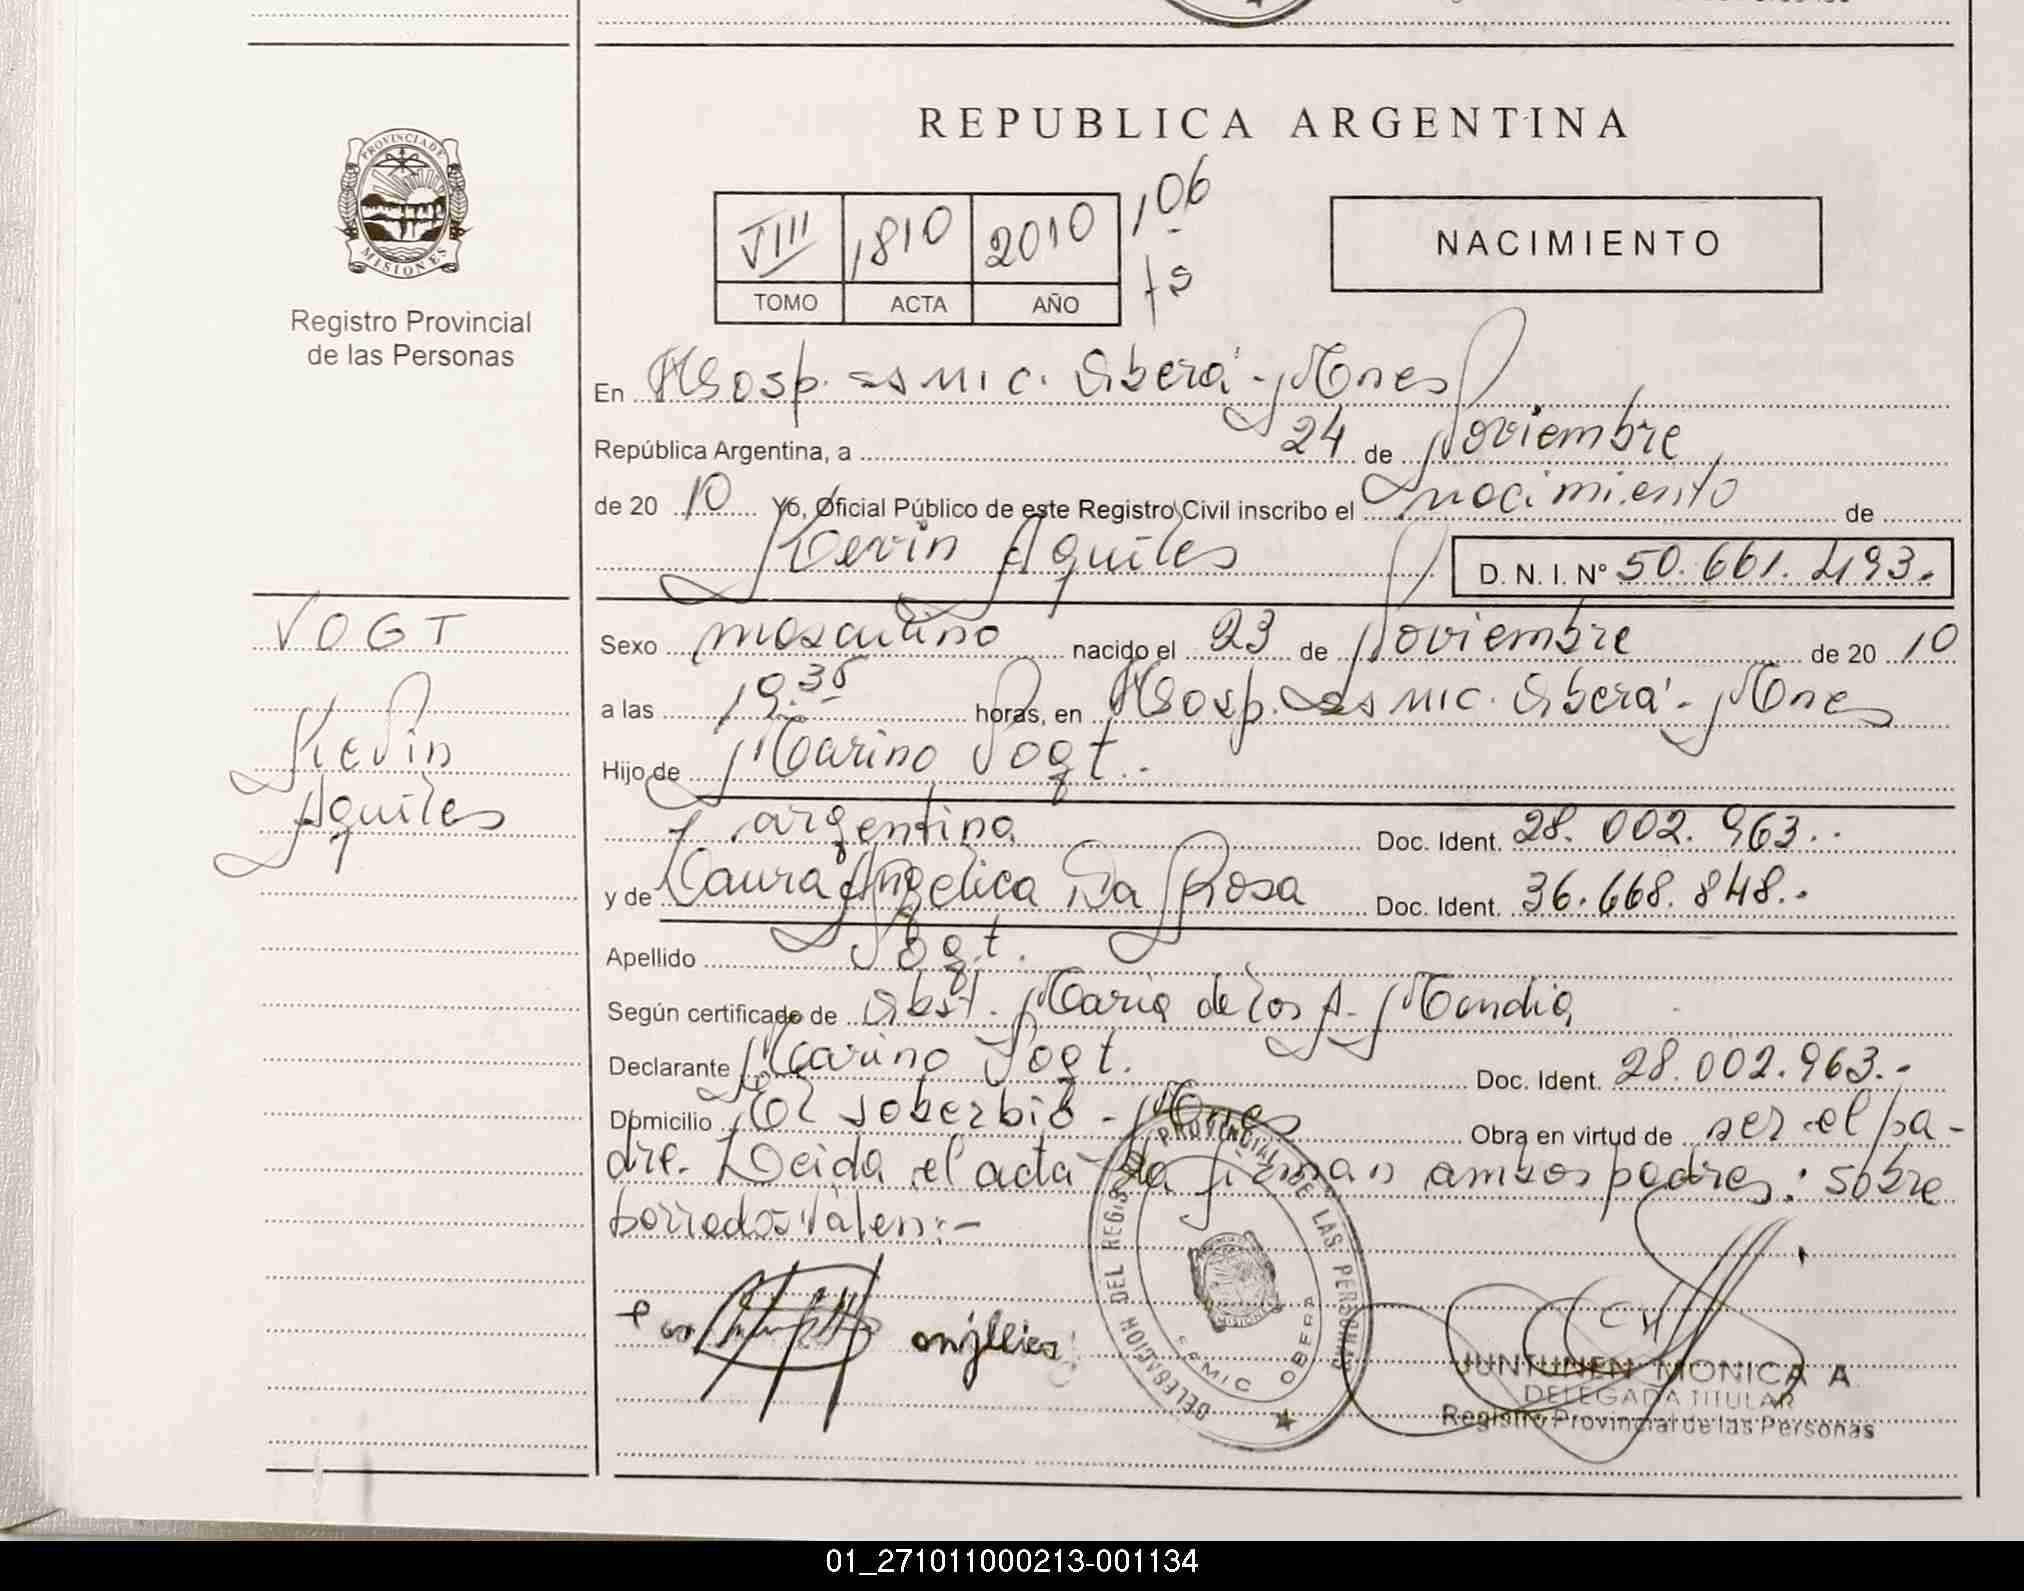 REPUBLICA ARGENTINA
PROVINCIA DE
MISIONES
Registro Provincial
de las Personas
VIII 1810 2010 106
TOMO ACTA AÑO fs
NACIMIENTO
En Hosp. Samic. Oberá - Mnes
República Argentina, a 24 de Noviembre
de 20 10 Yo, Oficial Público de este Registro Civil inscribo el nacimiento de
Kevin Aquiles D. N. I. N° 50.661.493.
VOGT
Kevin
Aquiles
Sexo masculino nacido el 23 de Noviembre de 20 10
a las 19.35 horas, en Hosp. Samic. Oberá - Mnes
Hijo de Marino Vogt.
argentina Doc. Ident. 28.002.963.
y de Laura Angelica Da Rosa Doc. Ident. 36.668.848.-
Apellido Vogt.
Según certificado de Obst. Maria de los A.
Declarante Marino Vogt. Doc. Ident. 28.002.963.-
Domicilio El Soberbio - Mnes Obra en virtud de ser el pa-
dre. Leida el acta la firman ambos padres: sobre
borrados valen:-
DELEGACION DEL REGIS PROVINCIAL DE LAS PERSONAS
MISIONES
SAMIC OBERA
JUNTUNEN MONICA A
DELEGADA TITULAR
Registro Provincial de las Personas
01_271011000213-001134